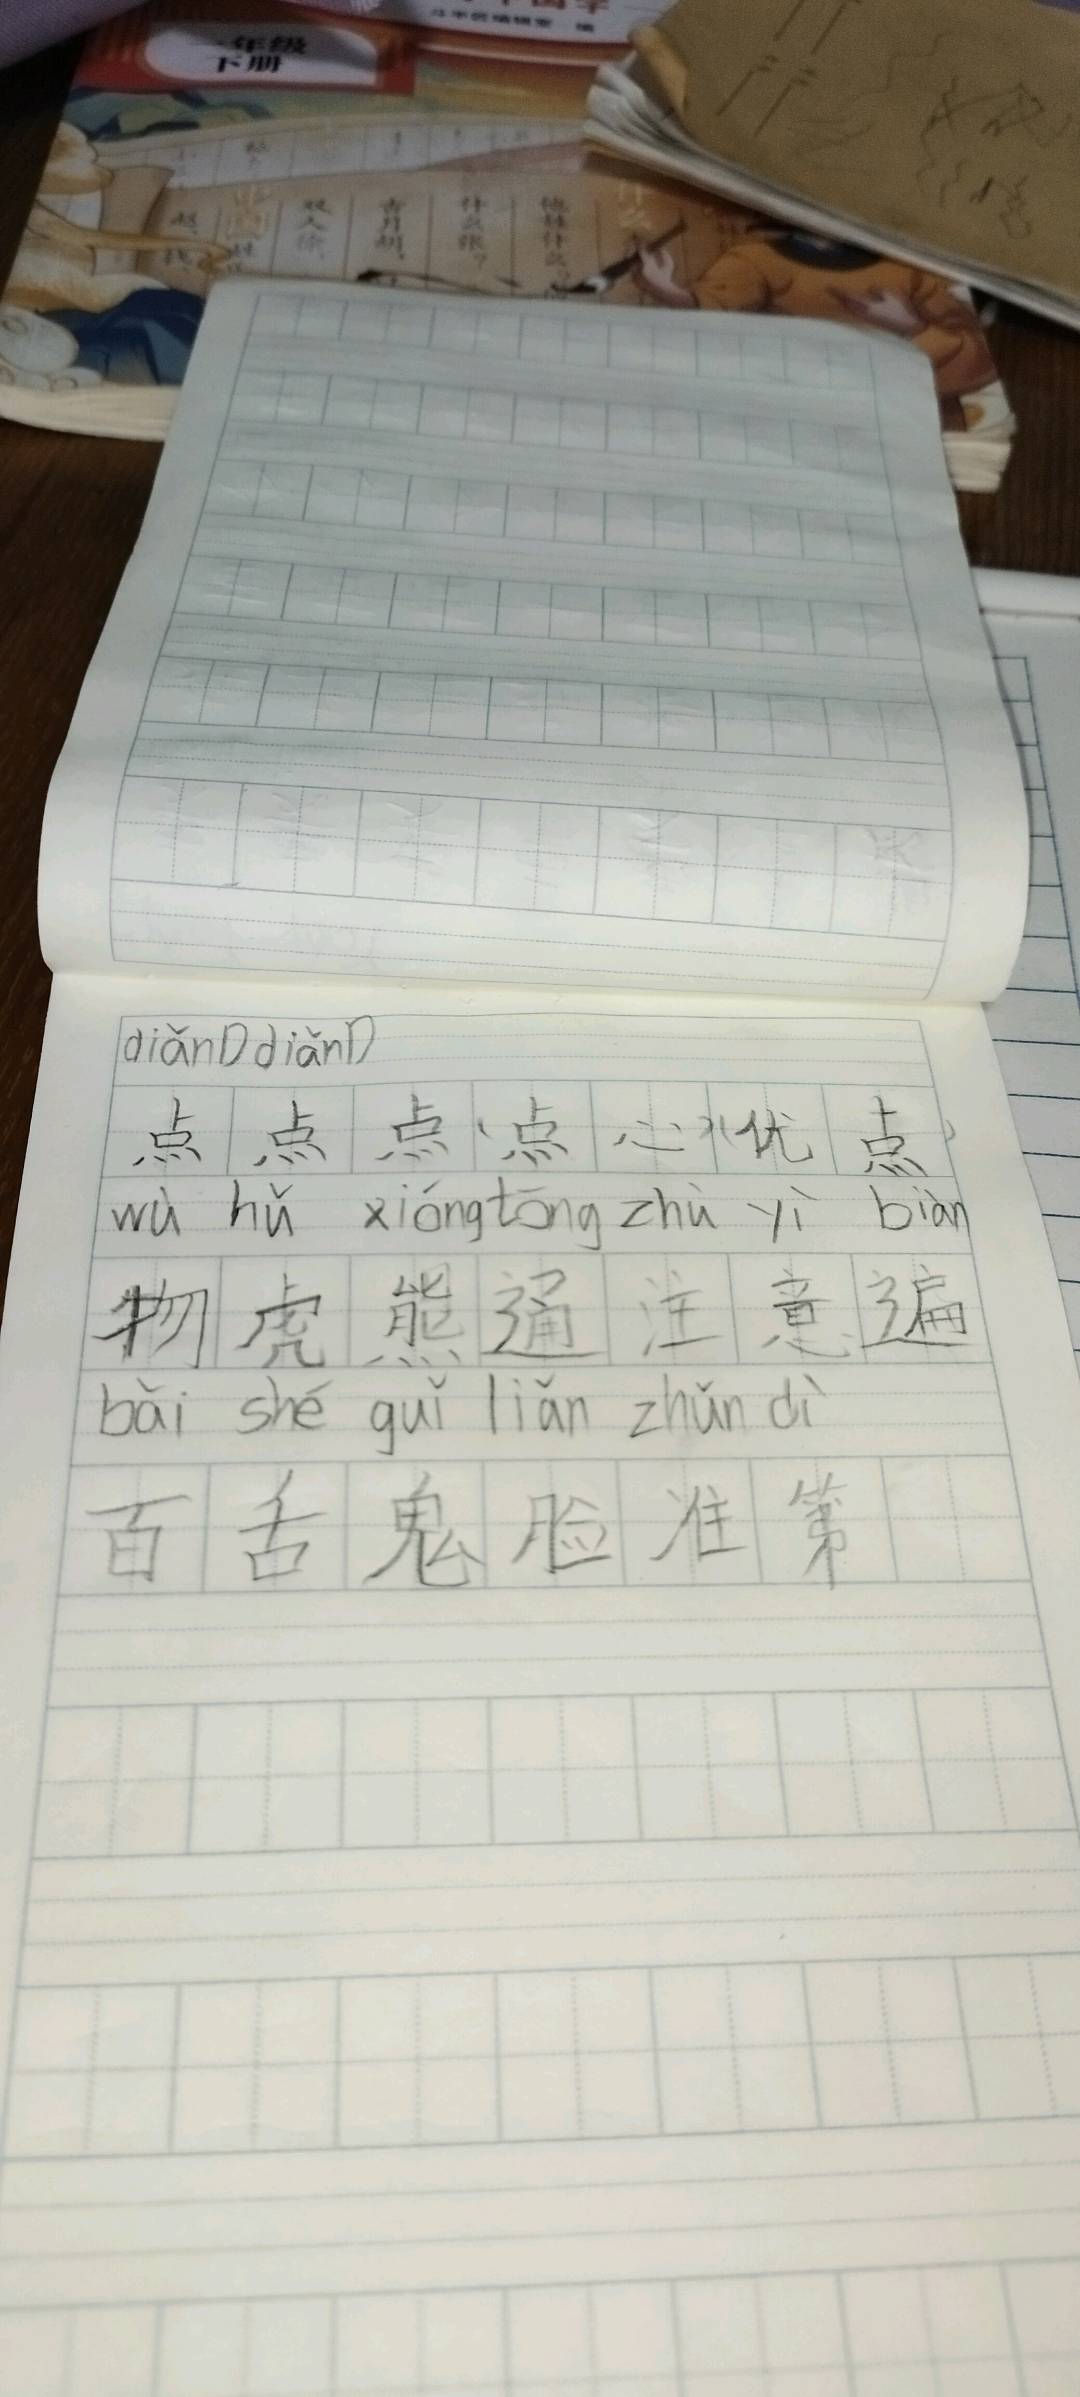 一年级
下册
双人徐,
古月胡,
什么张?
他姓什么?
diǎnDdiǎnD
点点点(点心)(优点)
wù hǔ xióng tōng zhù yì biàn
物虎熊通注意遍
bǎi shé guǐ liǎn zhǔn dì
百舌鬼脸准第